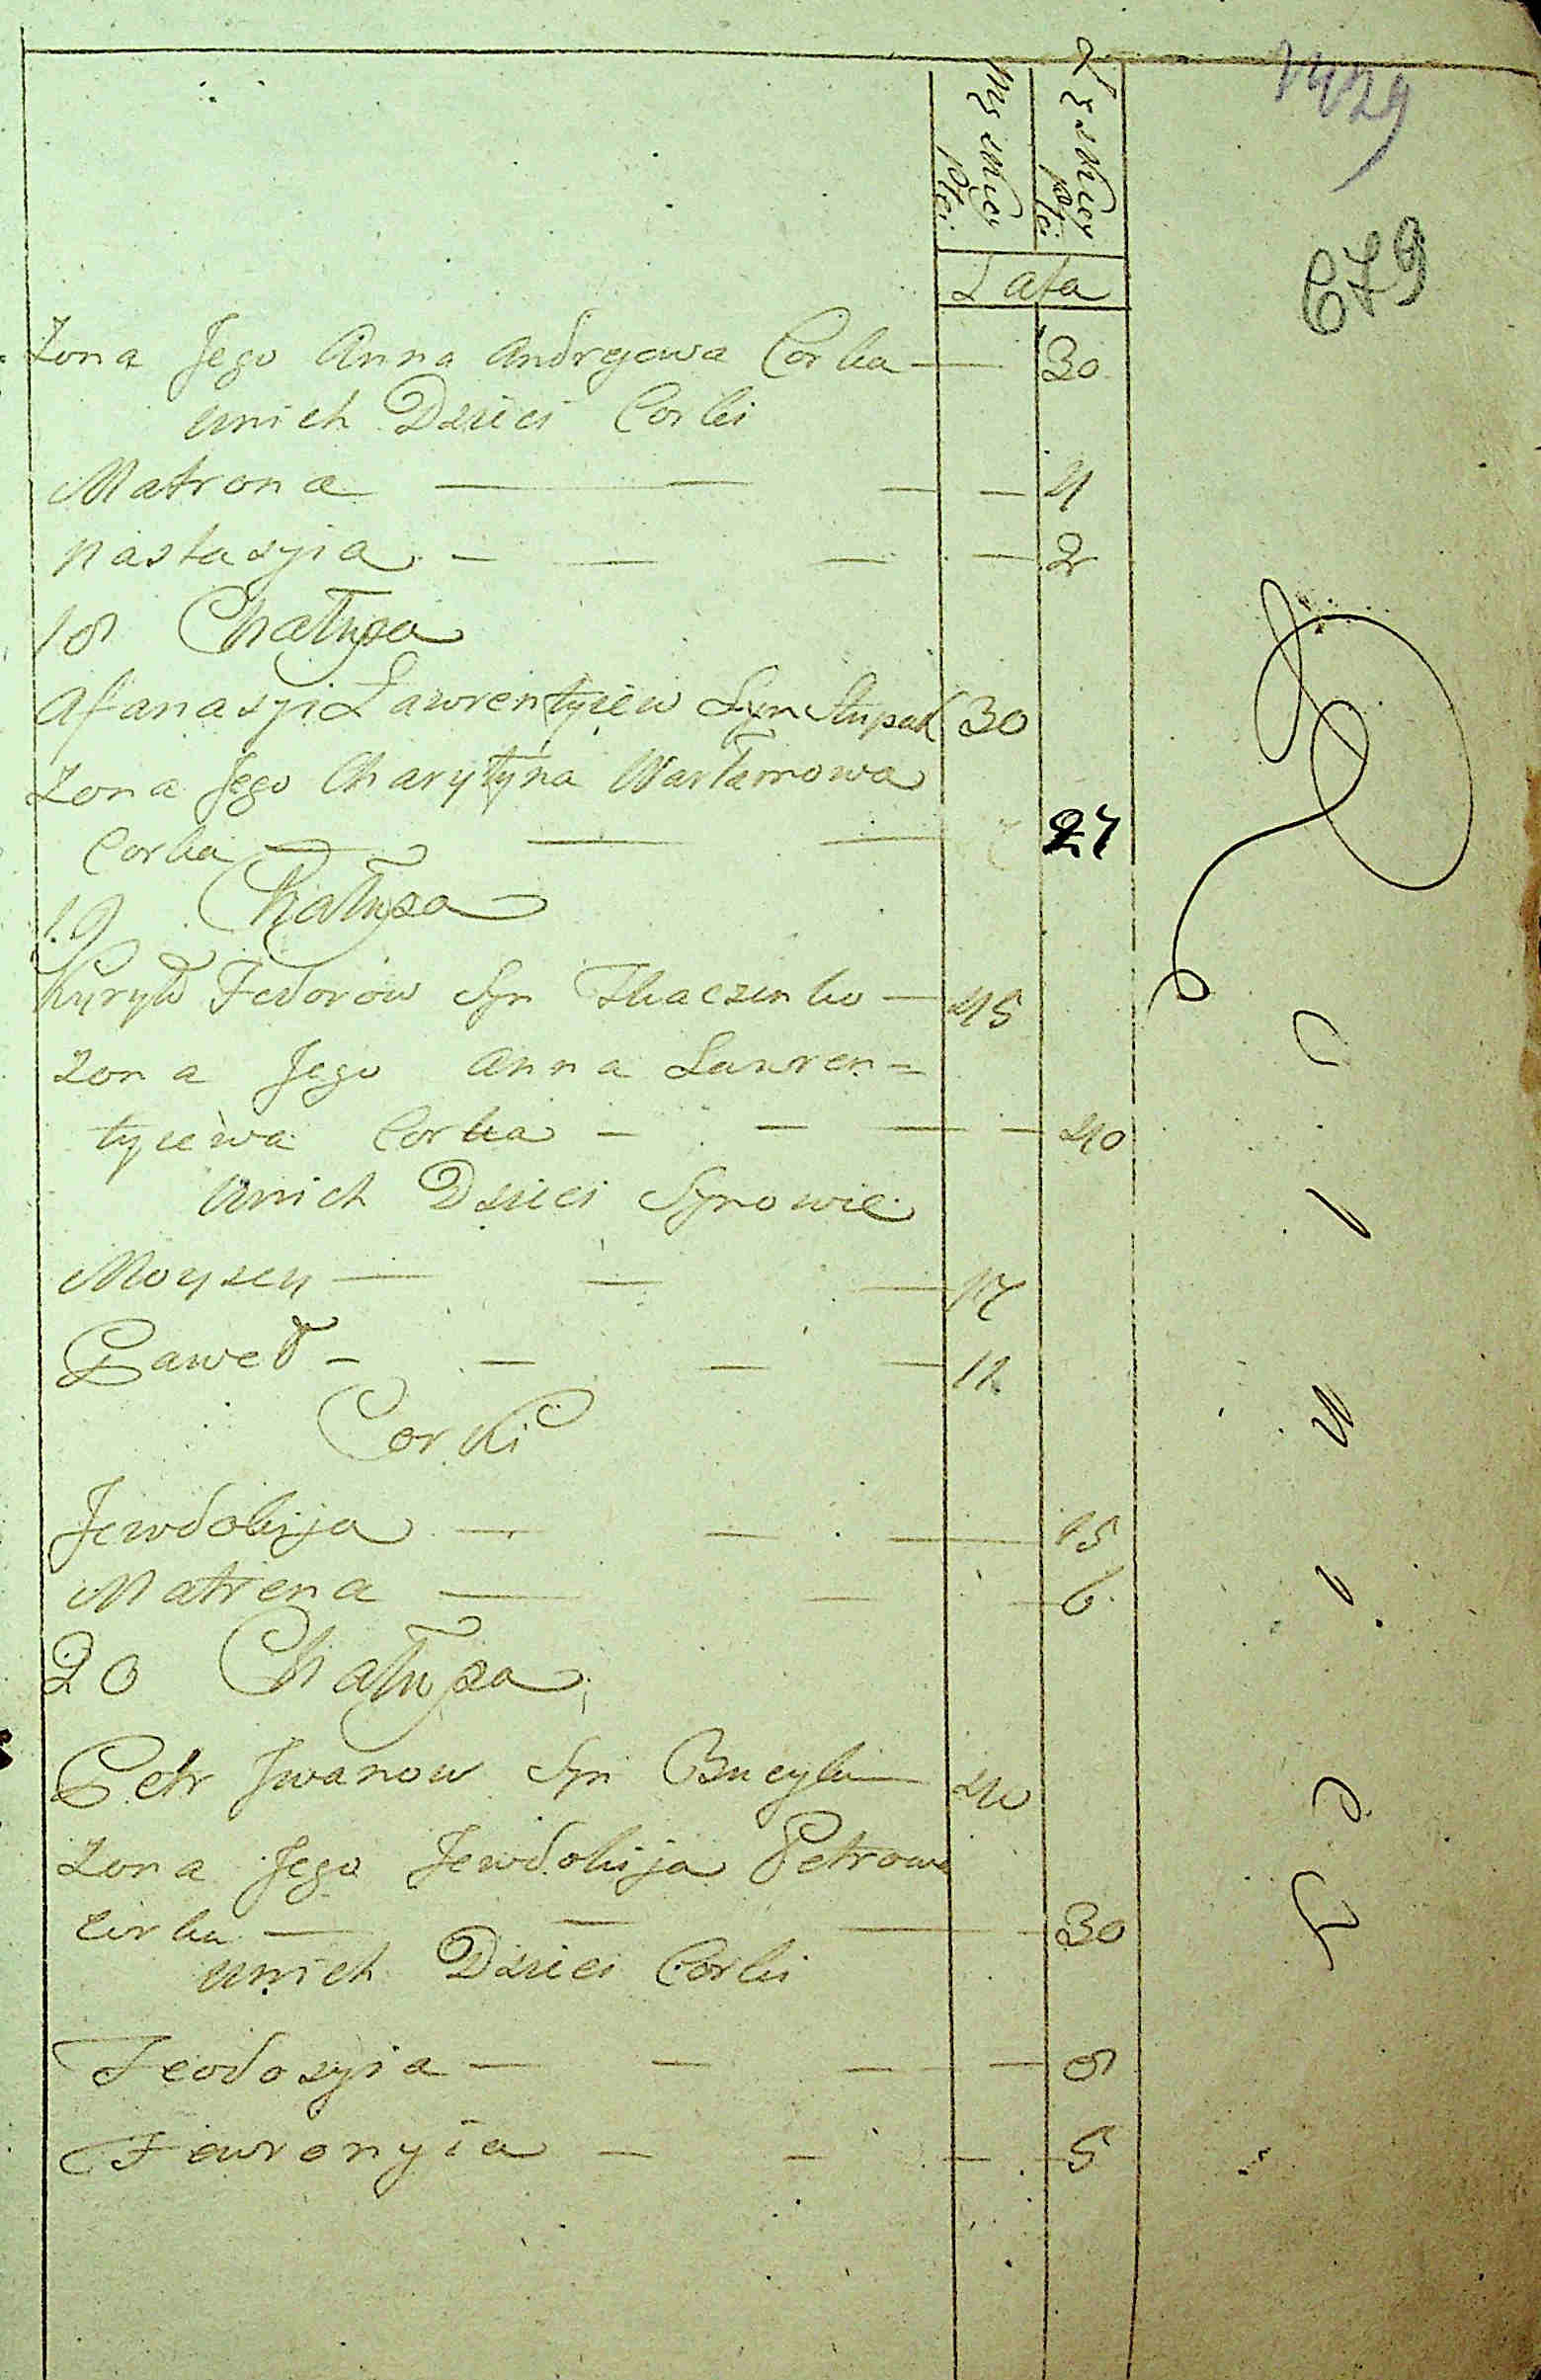 1429
679
Męskiey płci
Żęskiey płci
Lata
Zona Jego Anna Andrejewa Corka — 30
unich Dzieci Corki
Matrona — — — — 4
Nastasyia — — — — 2
18 Chałupa
Afanasyi Ławrentyiew Syn Stupak 30
Zona Jego Charytyna Warłamowa
Corka — — — 27
19 Chałupa
Kyryło Fedorow Syn Tkaczenko — 45
Zona Jego Anna Lawren=
tyiewa Corka — — — — 40
Unich Dzieci Synowie
Moysey — — — 17
Paweł — — — — 12
Corki
Jewdokija — — — 15
Matrena — — — 6
20 Chałupa
Petr Jwanow Syn 40
Zona Jego Jewdokija Petrowa
Corka — — — 30
unich Dzieci Corki
Feodosyia — — — — 8
Fewronyia — — — — 5